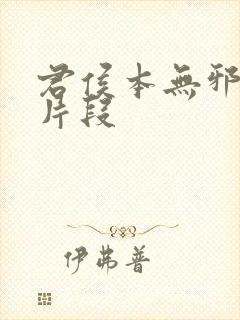 君侯本無邪
片段
伊弗普